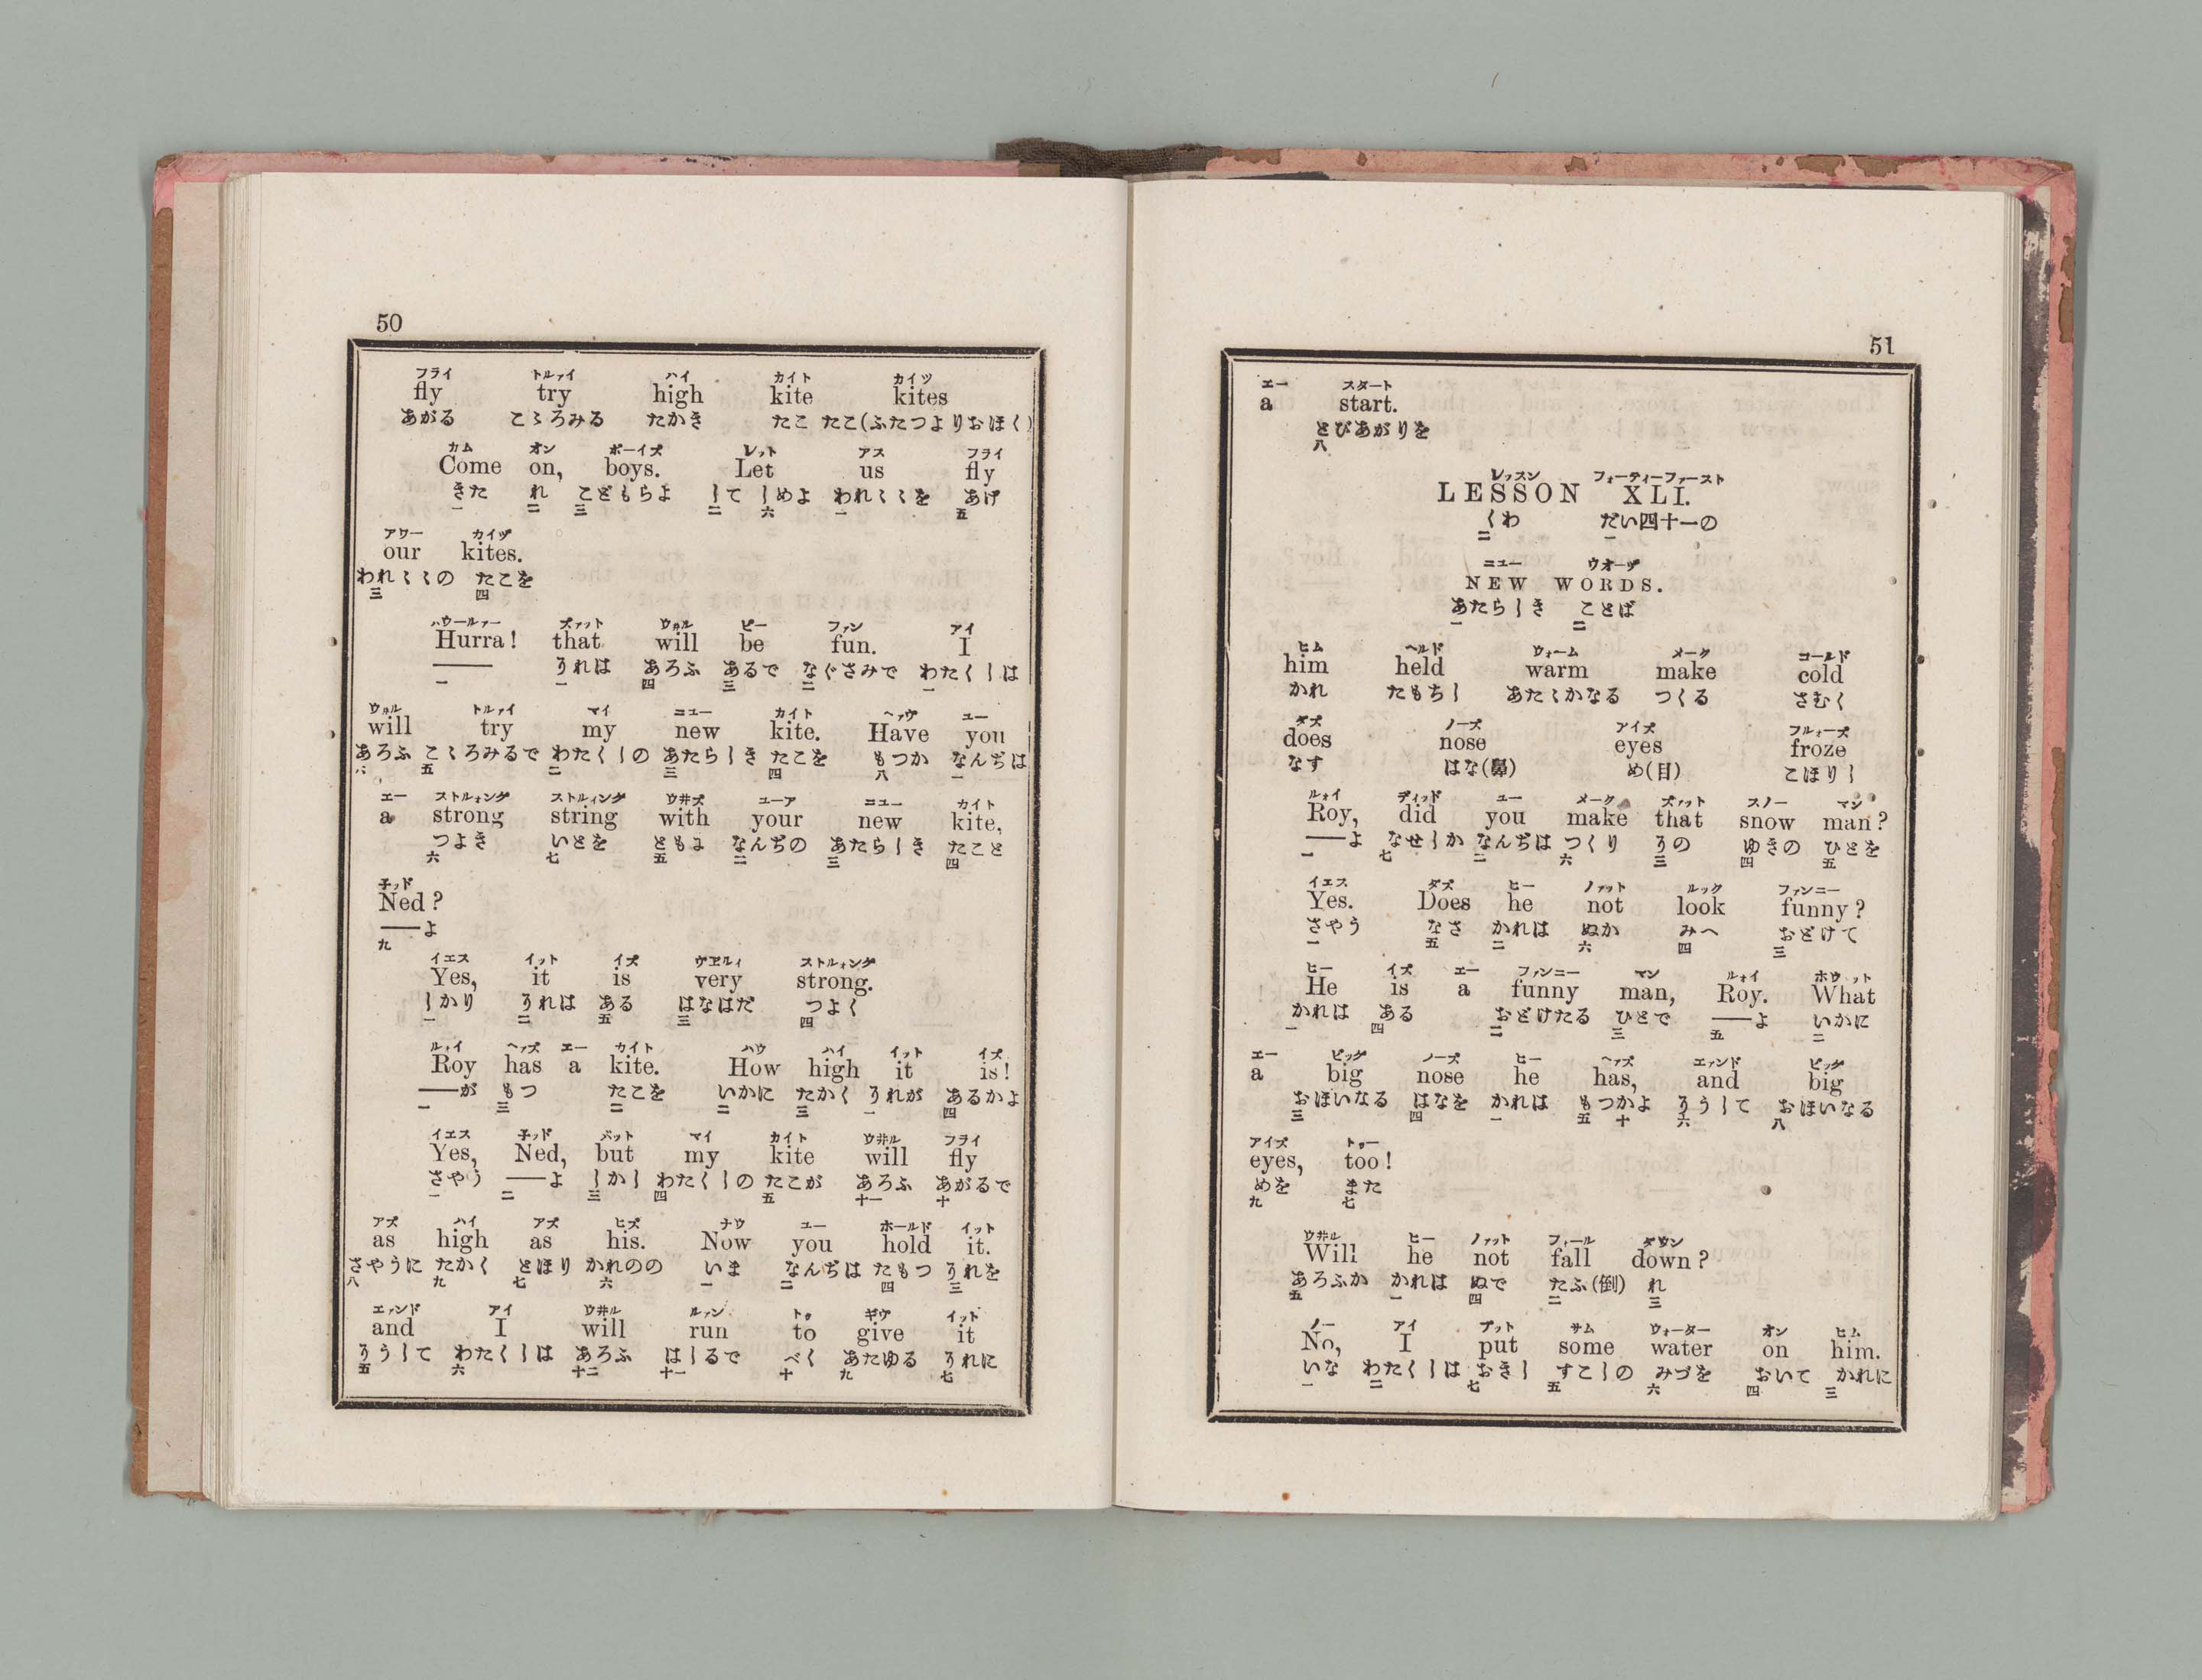 50
フライ トルァイ ハイ カイト カイツ
fly try high kite kites
あがる こゝろみる たかき たこ たこ(ふたつよりおほく)
カム オン ボーイズ レット アス フライ
Come on, boys. Let us fly
きた れ こどもらよ して しめよ われ〻〻を あげ
一 二 三 二 六 一 五
アワー カイヅ
our kites.
われ〻〻の たこを
三 四
ハウールァー ズァット ウ井ル ビー ファン アイ
Hurra! that will be fun. I
—— それは あろふ あるで なぐさみで わたくしは
一 一 四 三 二 一
ウ井ル トルァイ マイ ニュー カイト ヘァヴ ユー
will try my new kite. Have you
あろふ こゝろみるで わたくしの あたらしき たこを もつか なんぢは
六 五 二 三 四 八 一
エー ストルォング ストルィング ウ井ズ ユーア ニュー カイト
a strong string with your new kite,
つよき いとを ともに なんぢの あたらしき たこと
六 七 五 二 三 四
子ッド
Ned?
——よ
九
イエス イット イズ ヴエルィ ストルォング
Yes, it is very strong.
しかり それは ある はなはだ つよく
一 二 五 三 四
ルォイ ヘァズ エー カイト ハウ ハイ イット イズ
Roy has a kite. How high it is!
——が もつ たこを いかに たかく それが あるかよ
一 三 二 二 三 一 四
イエス 子ッド バット マイ カイト ウ井ル フライ
Yes, Ned, but my kite will fly
さやう ——よ しかし わたくしの たこが あろふ あがるで
一 二 三 四 五 十一 十
アズ ハイ アズ ヒズ ナウ ユー ホールド イット
as high as his. Now you hold it.
さやうに たかく とほり かれのの いま なんぢは たもつ それを
八 九 七 六 一 二 四 三
エァンド アイ ウ井ル ルァン トゥ ギヴ イット
and I will run to give it
そうして わたくしは あろふ はしるで べく あたゆる それに
五 六 十二 十一 十 九 七
51
エー スタート
a start.
とびあがりを
八
レッスン フォーティーファースト
LESSON XLI.
くわ だい四十一の
二 一
ニュー ウオーヅ
NEW WORDS.
あたらしき ことば
一 二
ヒム ヘルド ウォーム メーク コールド
him held warm make cold
かれ たもちし あたゝかなる つくる さむく
ダズ ノーズ アイズ フルォーズ
does nose eyes froze
なす はな(鼻) め(目) こほりし
ルォイ ディッド ユー メーク ズァット スノー マン
Roy, did you make that snow man?
——よ なせしか なんぢは つくり その ゆきの ひとを
一 七 二 六 三 四 五
イエス ダズ ヒー ノァット ルック ファンニー
Yes. Does he not look funny?
さやう なさ かれは ぬか みへ おどけて
一 五 二 六 四 三
ヒー イズ エー ファンニー マン ルォイ ホウァット
He is a funny man, Roy. What
かれは ある おどけたる ひとで ——よ いかに
一 四 二 三 五 二
エー ビッグ ノーズ ヒー ヘァズ エァンド ビッグ
a big nose he has, and big
おほいなる はなを かれは もつかよ そうして おほいなる
三 四 一 五 十 六 八
アイズ トゥー
eyes, too!
めを また
九 七
ウ井ル ヒー ノァット フォール ダウン
Will he not fall down?
あろふか かれは ぬで たふ(倒) れ
五 一 四 二 三
ノー アイ プット サム ウォーター オン ヒム
No, I put some water on him.
いな わたくしは おきし すこしの みづを おいて かれに
一 二 七 五 六 四 三